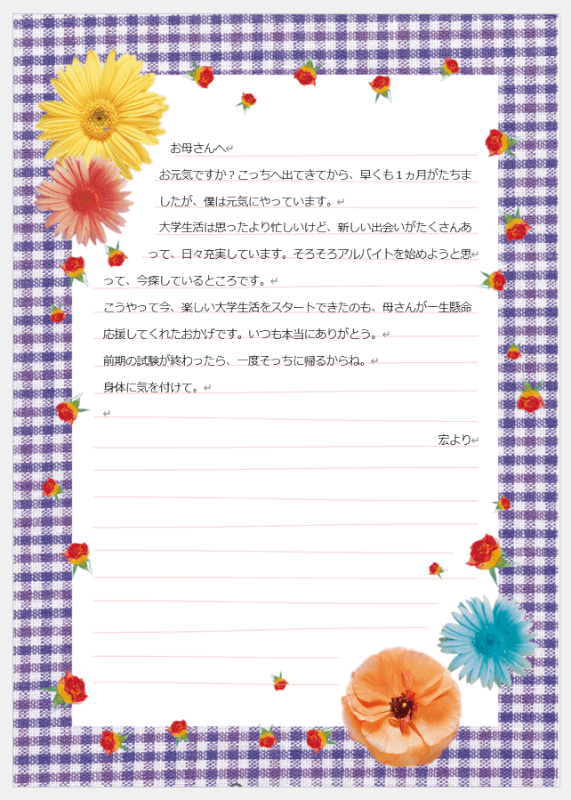 お母さんへ
お元気ですか？こっちへ出てきてから、早くも１ヵ月がたちま
したが、僕は元気にやっています。
大学生活は思ったより忙しいけど、新しい出会いがたくさんあ
って、日々充実しています。そろそろアルバイトを始めようと思
って、今探しているところです。
こうやって今、楽しい大学生活をスタートできたのも、母さんが一生懸命
応援してくれたおかげです。いつも本当にありがとう。
前期の試験が終わったら、一度そっちに帰るからね。
身体に気を付けて。
宏より